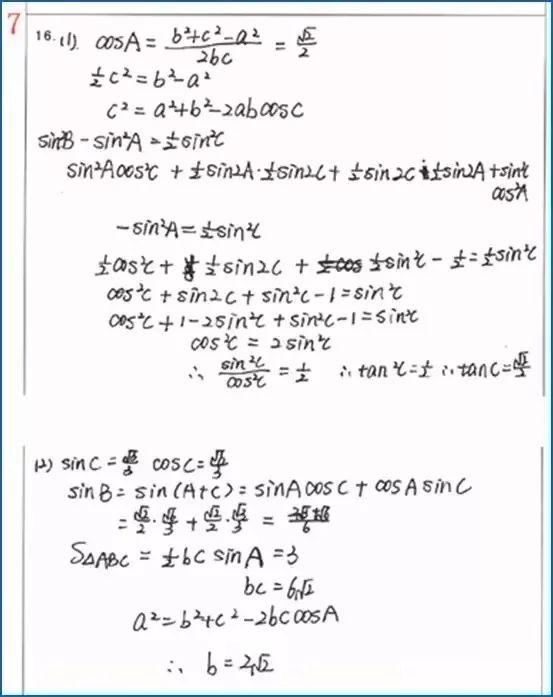 7
16.(1). cosA = (b²+c²-a²)/(2bc) = √2/2
½c² = b²-a²
c² = a²+b²-2abcosC
sin²B - sin²A = ½sin²C
sin²Acos²C + ½sin2A·½sin2C + ½sin2C·½sin2A + sin²C
cos²A
-sin²A = ½sin²C
½cos²C + ½sin2C + ½sin²C - ½ = ½sin²C
cos²C + sin2C + sin²C - 1 = sin²C
cos²C + 1 - 2sin²C + sin²C - 1 = sin²C
cos²C = 2sin²C
∴ sin²C/cos²C = ½ ∴ tan²C = ½ ∴ tanC = √2/2
(2) sinC = cosC =
sinB = sin(A+C) = sinAcosC + cosAsinC
S△ABC = ½bc sinA = 3
bc = 6√2
a² = b²+c²-2bccosA
∴ b = 2√2